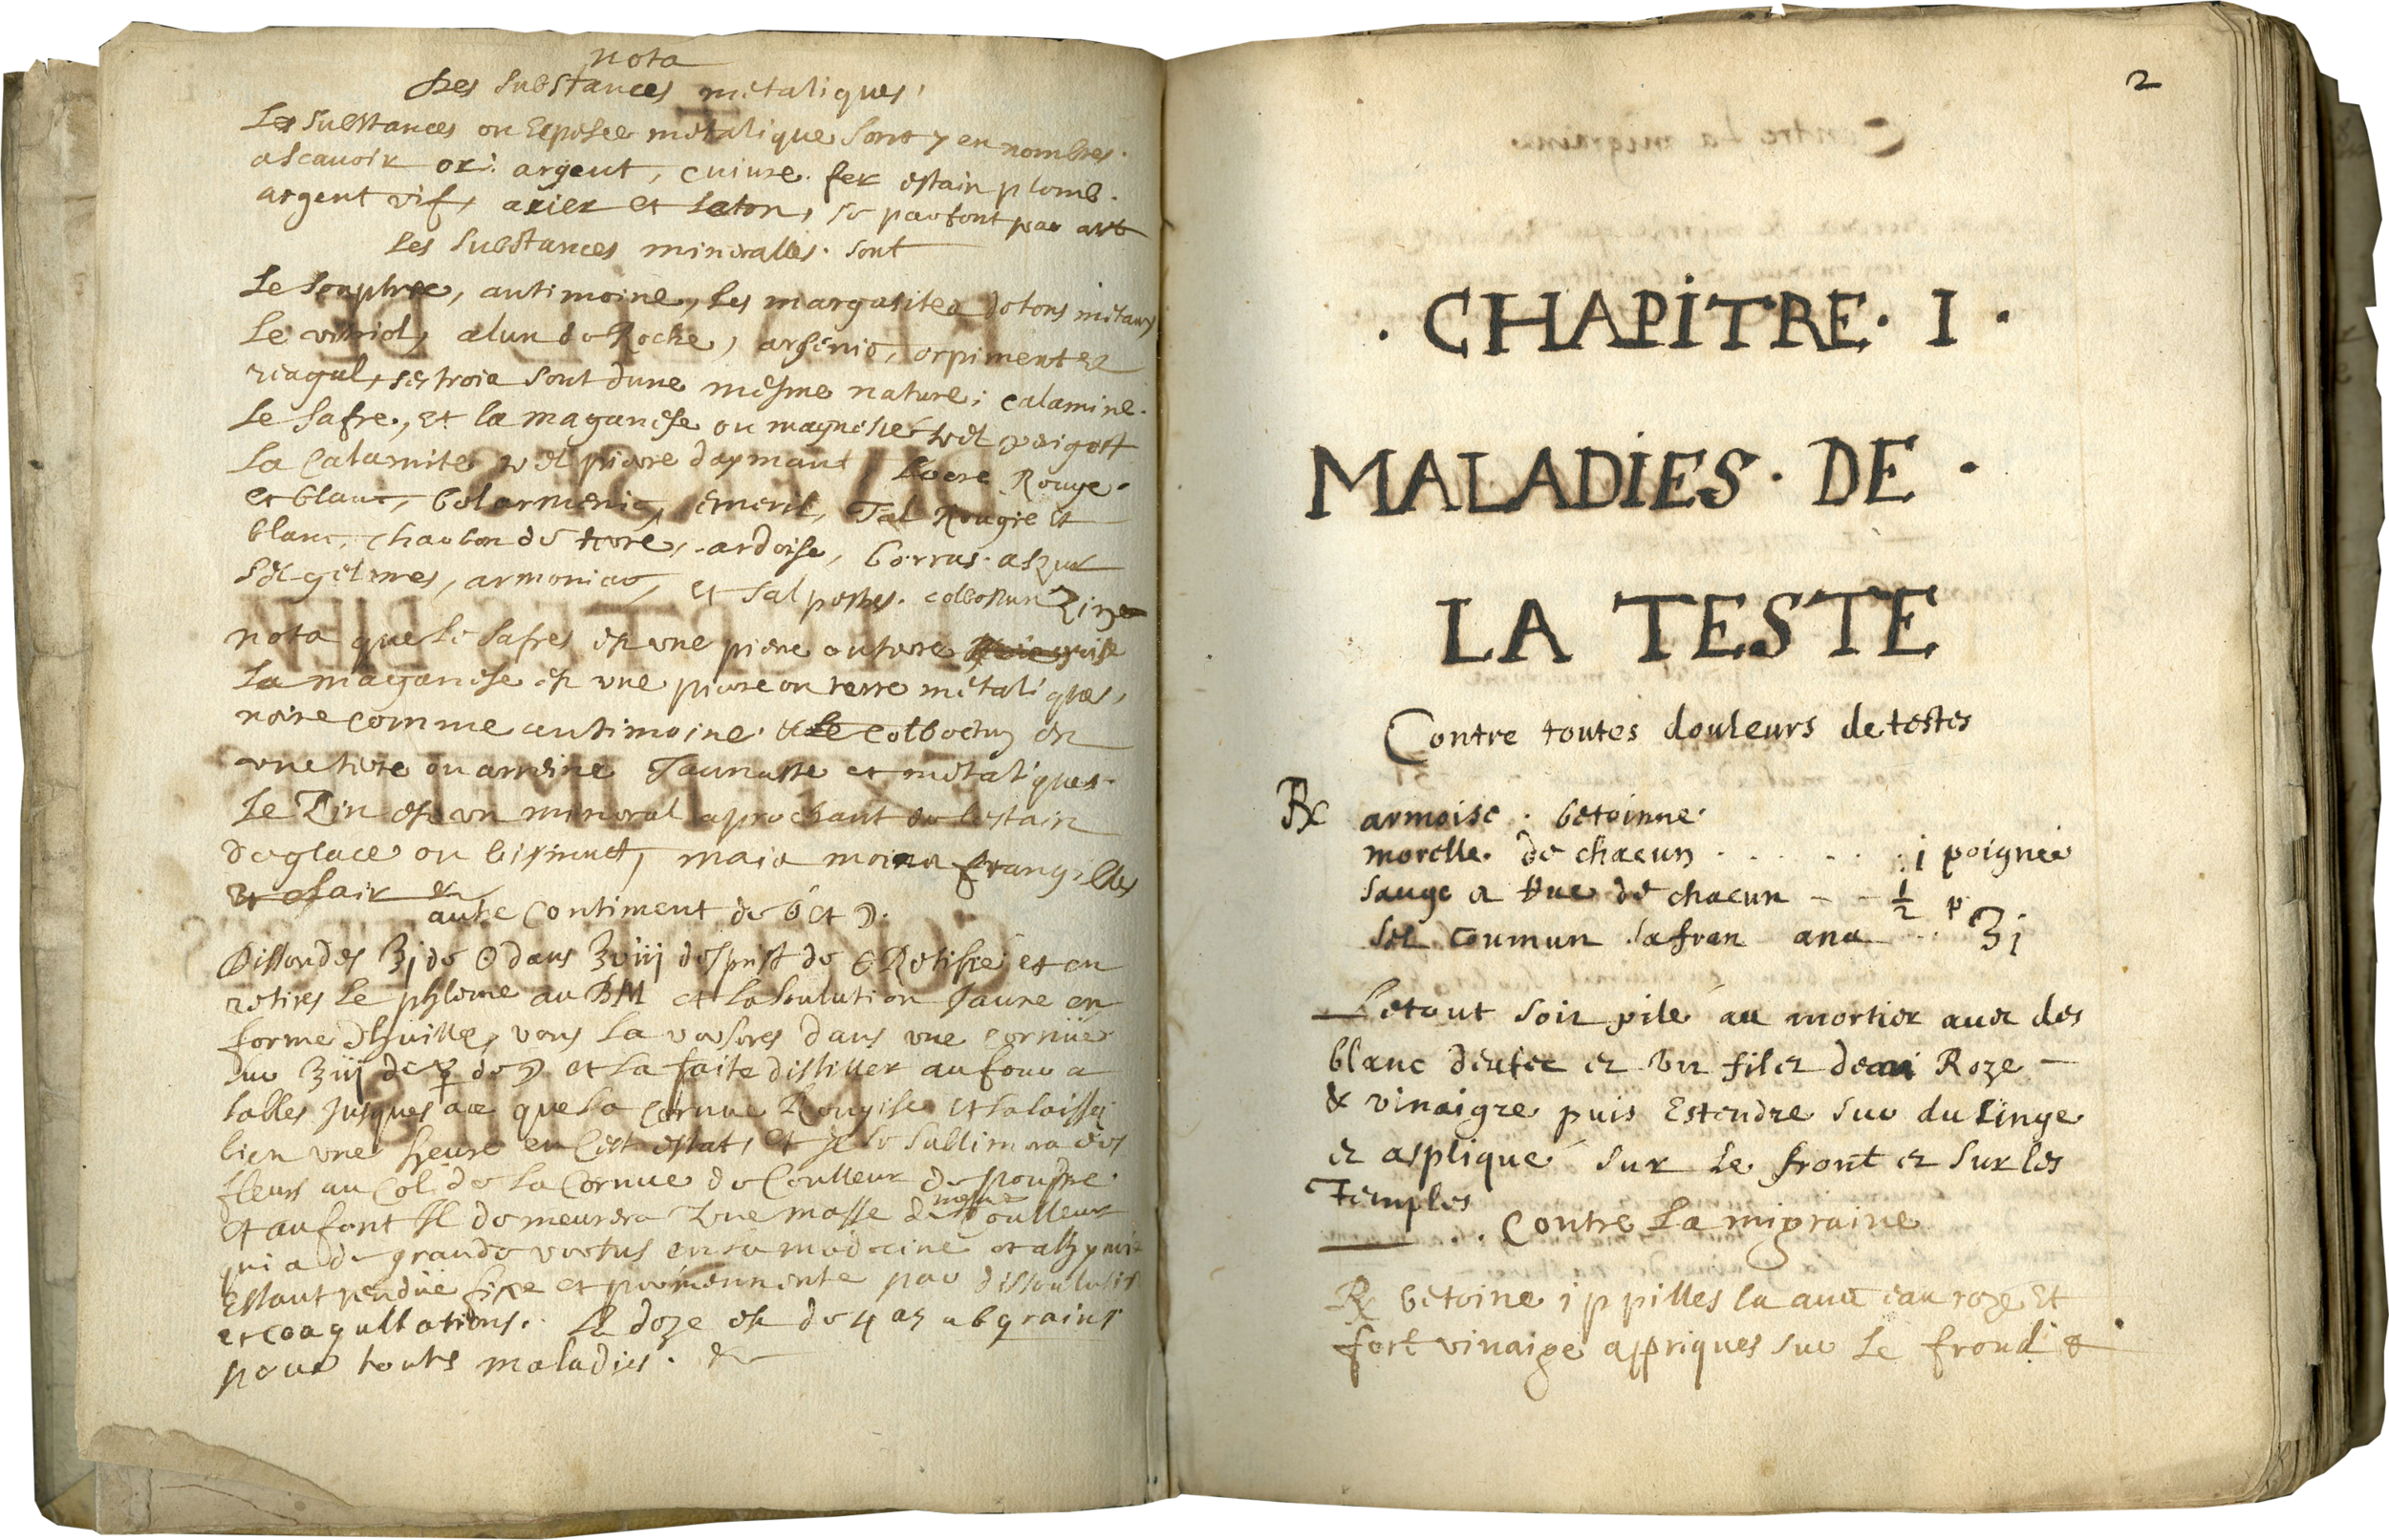 nota
Des substances metaliques,
Les substances ou Espesce metalique sont 7 en nombres.
ascauoir or: argent, cuiure. fer estain plomb.
argent vif, acier et Laton, se pau font par art
Les substances mineralles. sont
Le souphre, antimoine, les margasites de tous metaux
Le vitriol, alun de Roche, arsenic, orpiment et
reagal, ses trois sont dune mesme nature; calamine.
Le Safre, et la maganese ou magnesie
La Calamite pierre daymant Rouge.
et blanc, bolarmenic, emeril, Tal Rouge et
blanc, charbon de terre, ardoise, borras. aszur
Sel gelmes, armoniac, et sal petres. Zin
nota que le safres est une piere ou terre grise
La maganese est une piere ou terre metaliques,
noire comme antimoine. & Le
une tere ou Jaunastre et metaliques.
Le Zin est un mineral aprochant de lestain
de glace ou bismuct, mais moins frangilles
et clair &
autre Contiment de et
Dissoudes ʒj de dans ʒviij desprist de Retifié et en
retires Le phleme au BM et la soulution Jaune en
forme dhuille, vous la verseres dans une cornue
sur ʒiij de de et la faite distiller au four a
sables Jusques ace que la Cornue Rougise et la laisser
bien une heure en cest estat, et Il se sublimera des
fleurs au Col de la Cornue de Coulleur de pourpre.
et au font Il demeurera Une masse de mesme Coulleur
qui a de grande vertus en la medecine et alchymie
Estant rendue fixe et permennente par dissoulution
et coagullations. La doze est de 4 a grains
pour touts maladies. &
2
. CHAPITRE . I .
MALADIES . DE .
LA TESTE
Contre toutes douleurs de testes
℞ armoise . betoinne.
morelle. de chacun . . . . . . j poignée
sauge & Rue de chacun - - ½ p
sel coumun safran ana . . ʒj
Le tout soit pilé au mortier auec des
blanc deufec et Un filet deau Roze —
& vinaigre puis Estendre sur du Linge
et asplique sur Le front et sur les
Temples
. . Contre La migraine
℞ betoine j p pilles la auec eau roze Et
fort vinaige appriques sur Le frond &